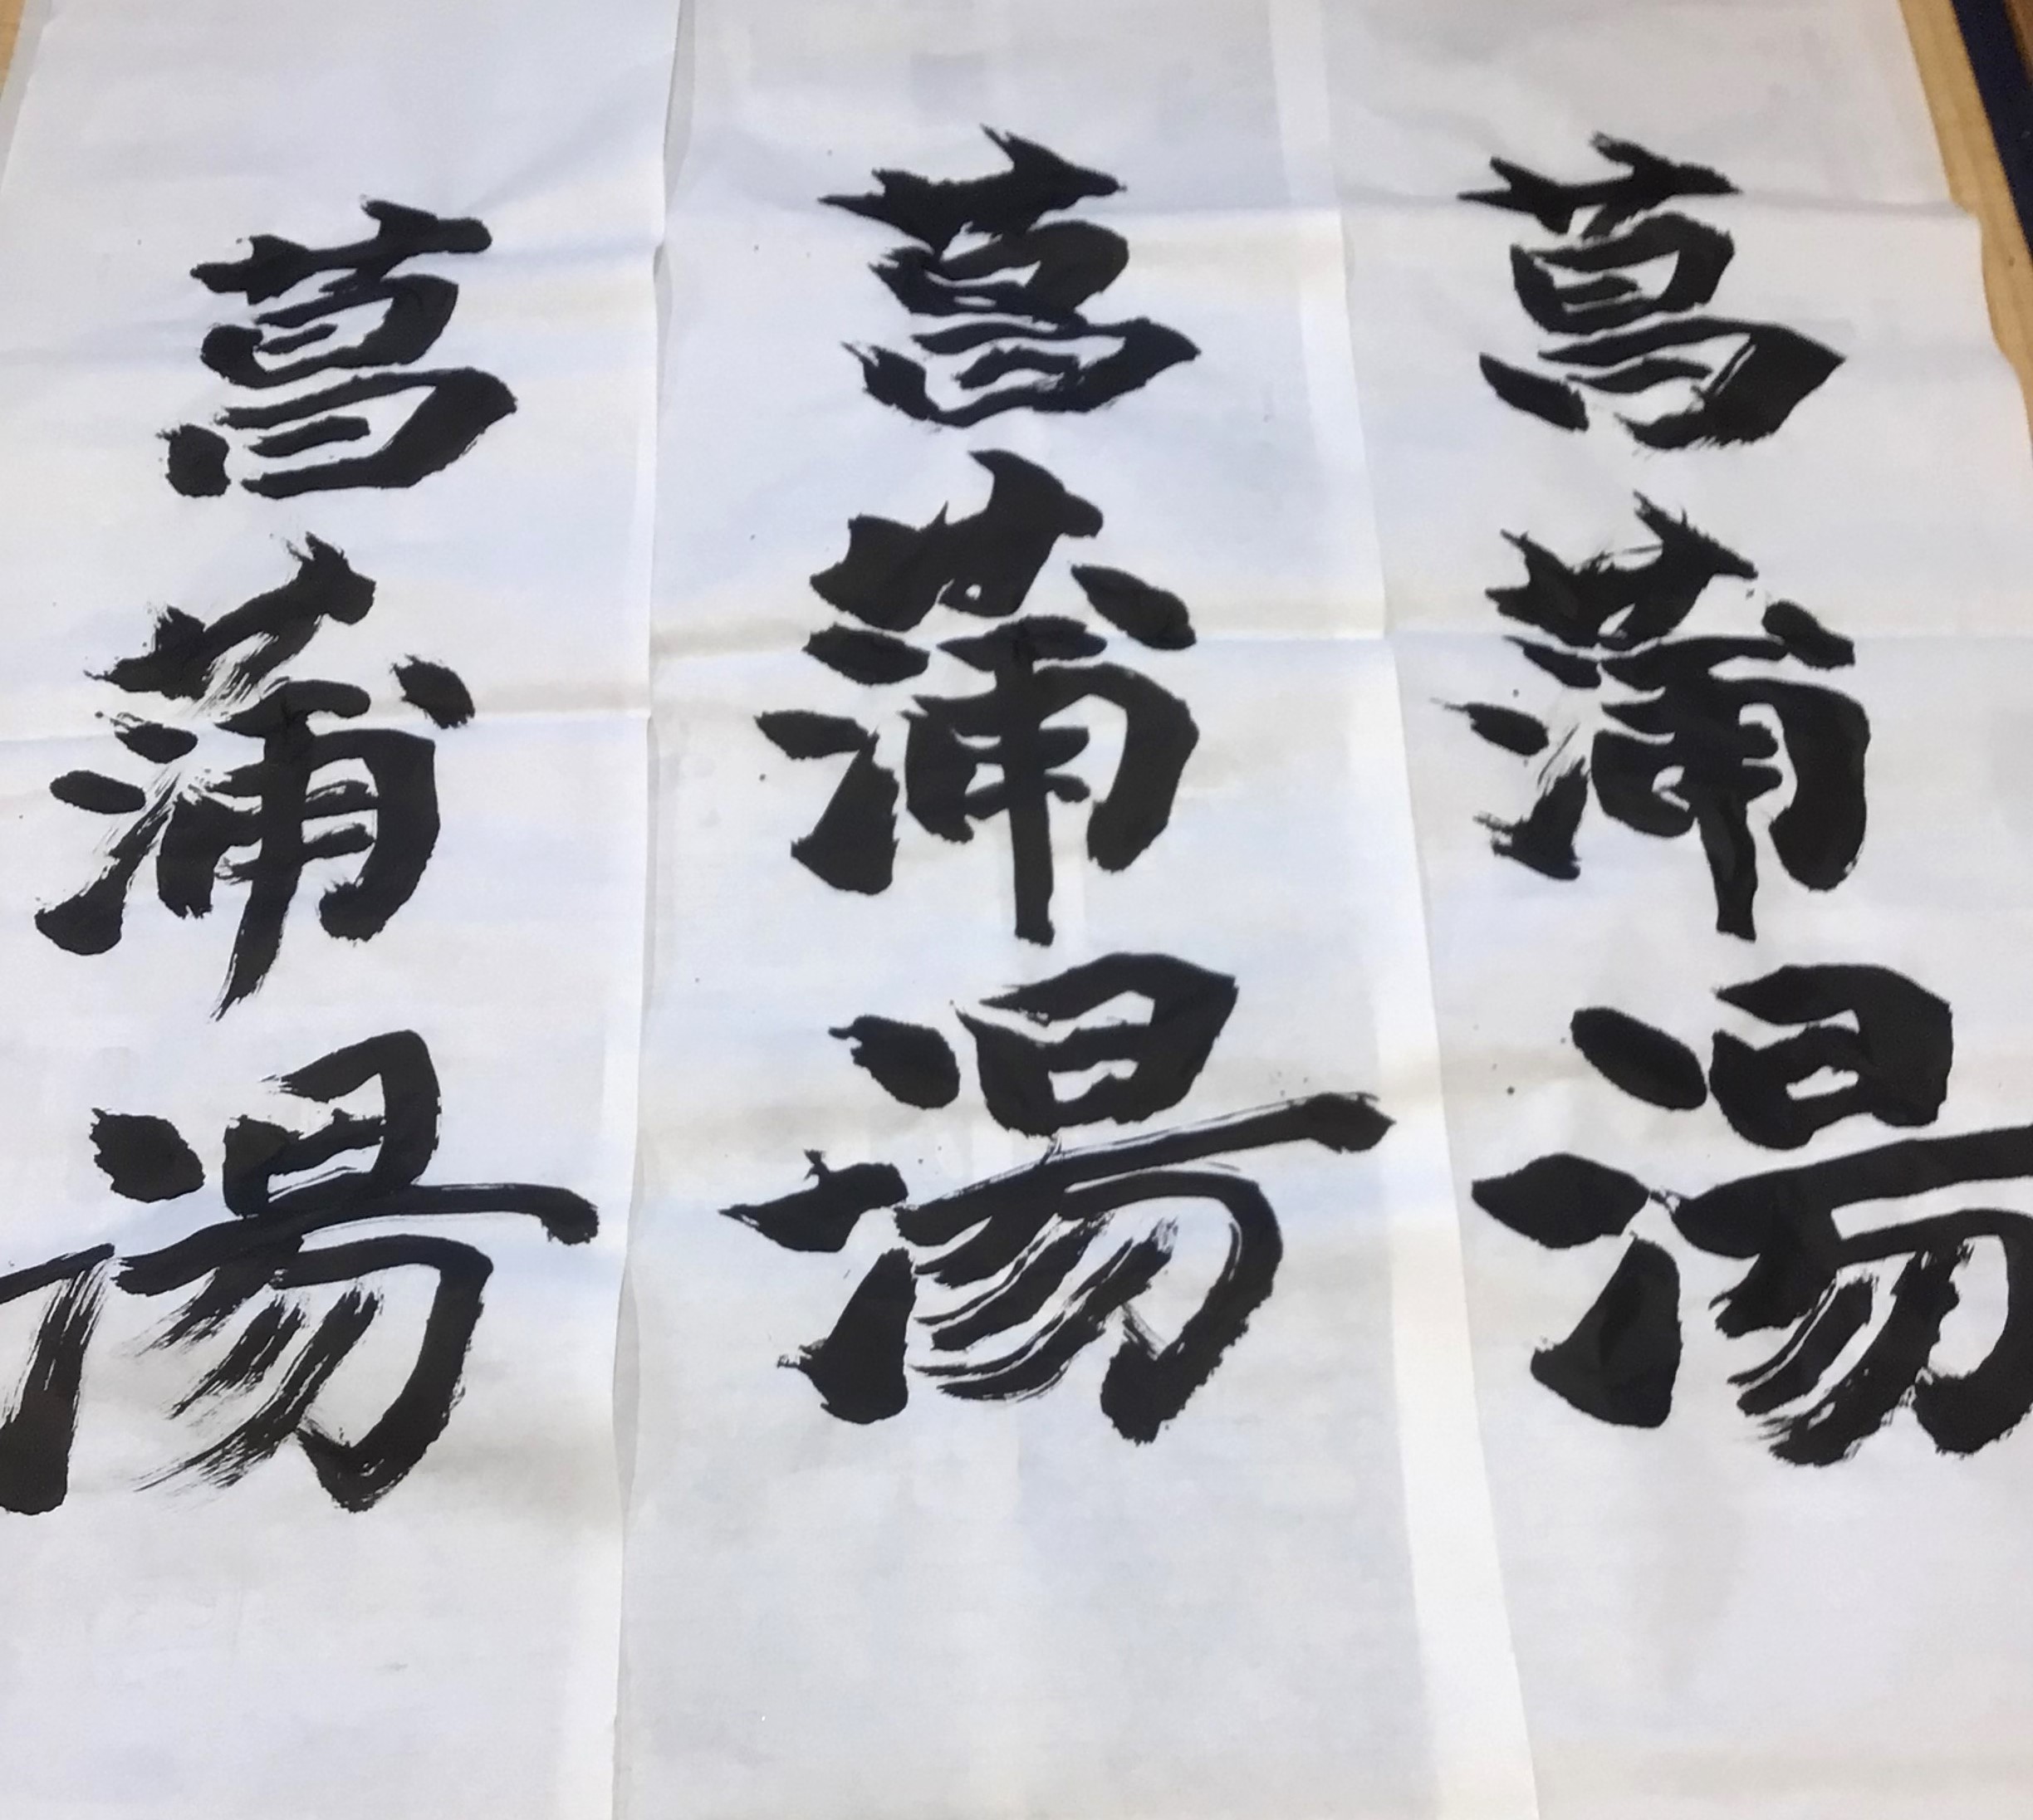 菖蒲湯
菖蒲湯
菖蒲湯